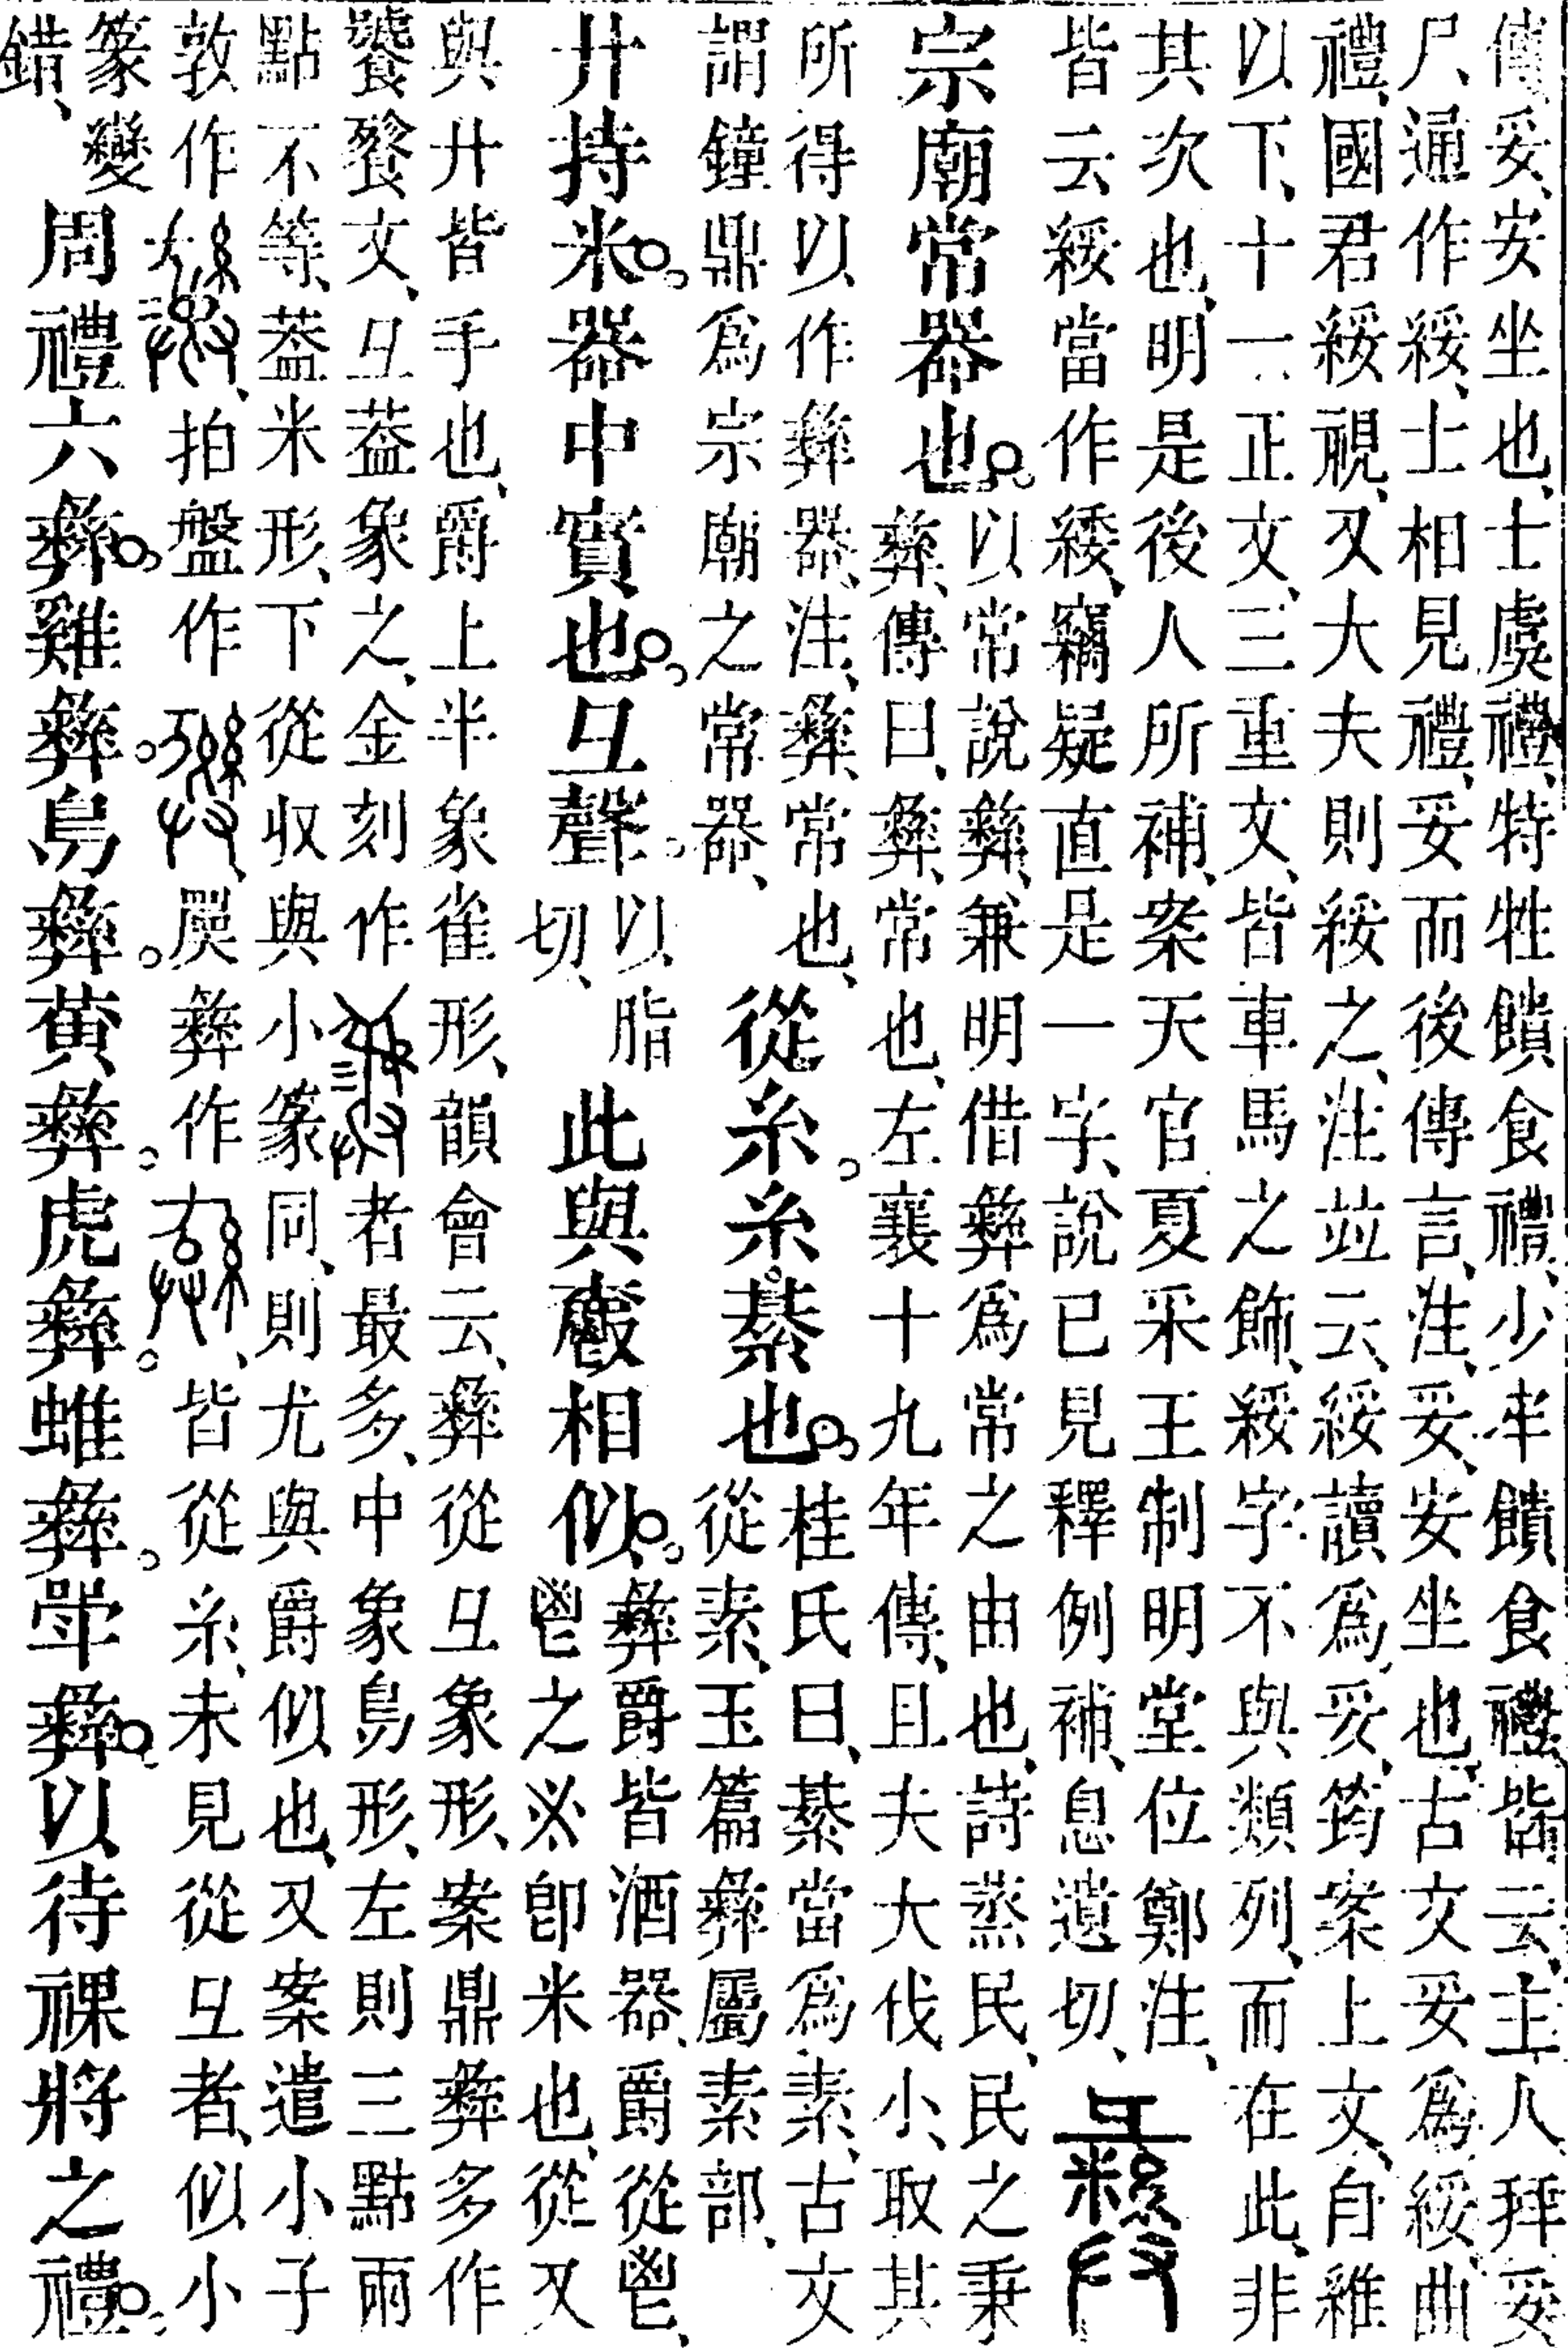 傳妥、安坐也、士虞禮、特牲饋食禮、少牢饋食禮、皆云、主人拜妥
尸、通作綏、士相見禮、妥而後傳言、注、妥、安坐也、古文妥爲綏、曲
禮、國君綏視、又大夫則綏之、注竝云、綏讀爲妥、筠案上文、自維
以下、十一正文、三重文、皆車馬之飾、綏字不與類列、而在此、非
其次也、明是後人所補、案天官夏采王制明堂位鄭注、
皆云綏當作緌、竊疑直是一字、說已見釋例補、息遺切、
彝
宗廟常器也。
以常說彝、兼明借彝爲常之由也、詩蒸民、民之秉
彝、傳曰、彝、常也、左襄十九年傳、且夫大伐小、取其
所得以作彝器、注、彝、常也、
謂鐘鼎爲宗廟之常器、
從糸。糸、綦也。
桂氏曰、綦當爲素、古文
從素、玉篇彝屬素部、
廾持米。器中實也。彑聲。
以脂
切、
此與相似。
彝爵皆酒器、爵從鬯、
鬯之※卽米也、從又
與廾皆手也、爵上半象雀形、韻會云、彝從彑象形、案鼎彝多作
饕餮文、彑蓋象之、金刻作者最多、中象鳥形、左則三點兩
點不等、蓋米形、下從収與小篆同、則尤與爵似也、又案遣小子
敦作、拍盤作、㠱彝作、皆從糸、未見從彑者、似小
篆變
錯、
周禮六彝。雞彝。鳥彝。黃彝。虎彝。蜼彝。斝彝。以待祼將之禮。